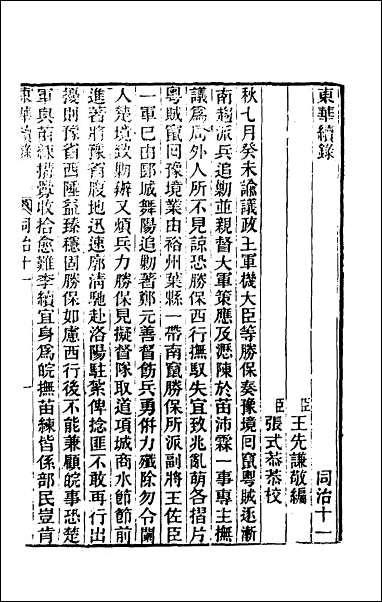 東華續錄
同治十一
臣王先謙敬編
臣張式恭恭校
秋七月癸未諭議政王軍機大臣等勝保奏豫境回竄粵賊逐漸
南趨派兵追勦並親督大軍策應及瀝陳於苗沛霖一事專主撫
議爲局外人所不見諒恐勝保西行撫馭失宜致兆亂萌各摺片
粵賊竄回豫境業由裕州葉縣一帶南竄勝保所派副將王佐臣
一軍已由郾城舞陽追勦著鄭元善督飭兵勇併力殲除勿令闌
人楚境致勦辦又煩兵力勝保見擬督隊取道項城商水節節前
進著將豫省腹地迅速廓清馳赴洛陽駐紮俾捻匪不敢再行出
擾則豫省西陲益臻穩固勝保如慮西行後不能兼顧皖事恐楚
軍與苗練搆釁收拾愈難李續宜身爲皖撫苗練皆係部民豈肯
東華續錄
同治十一
一